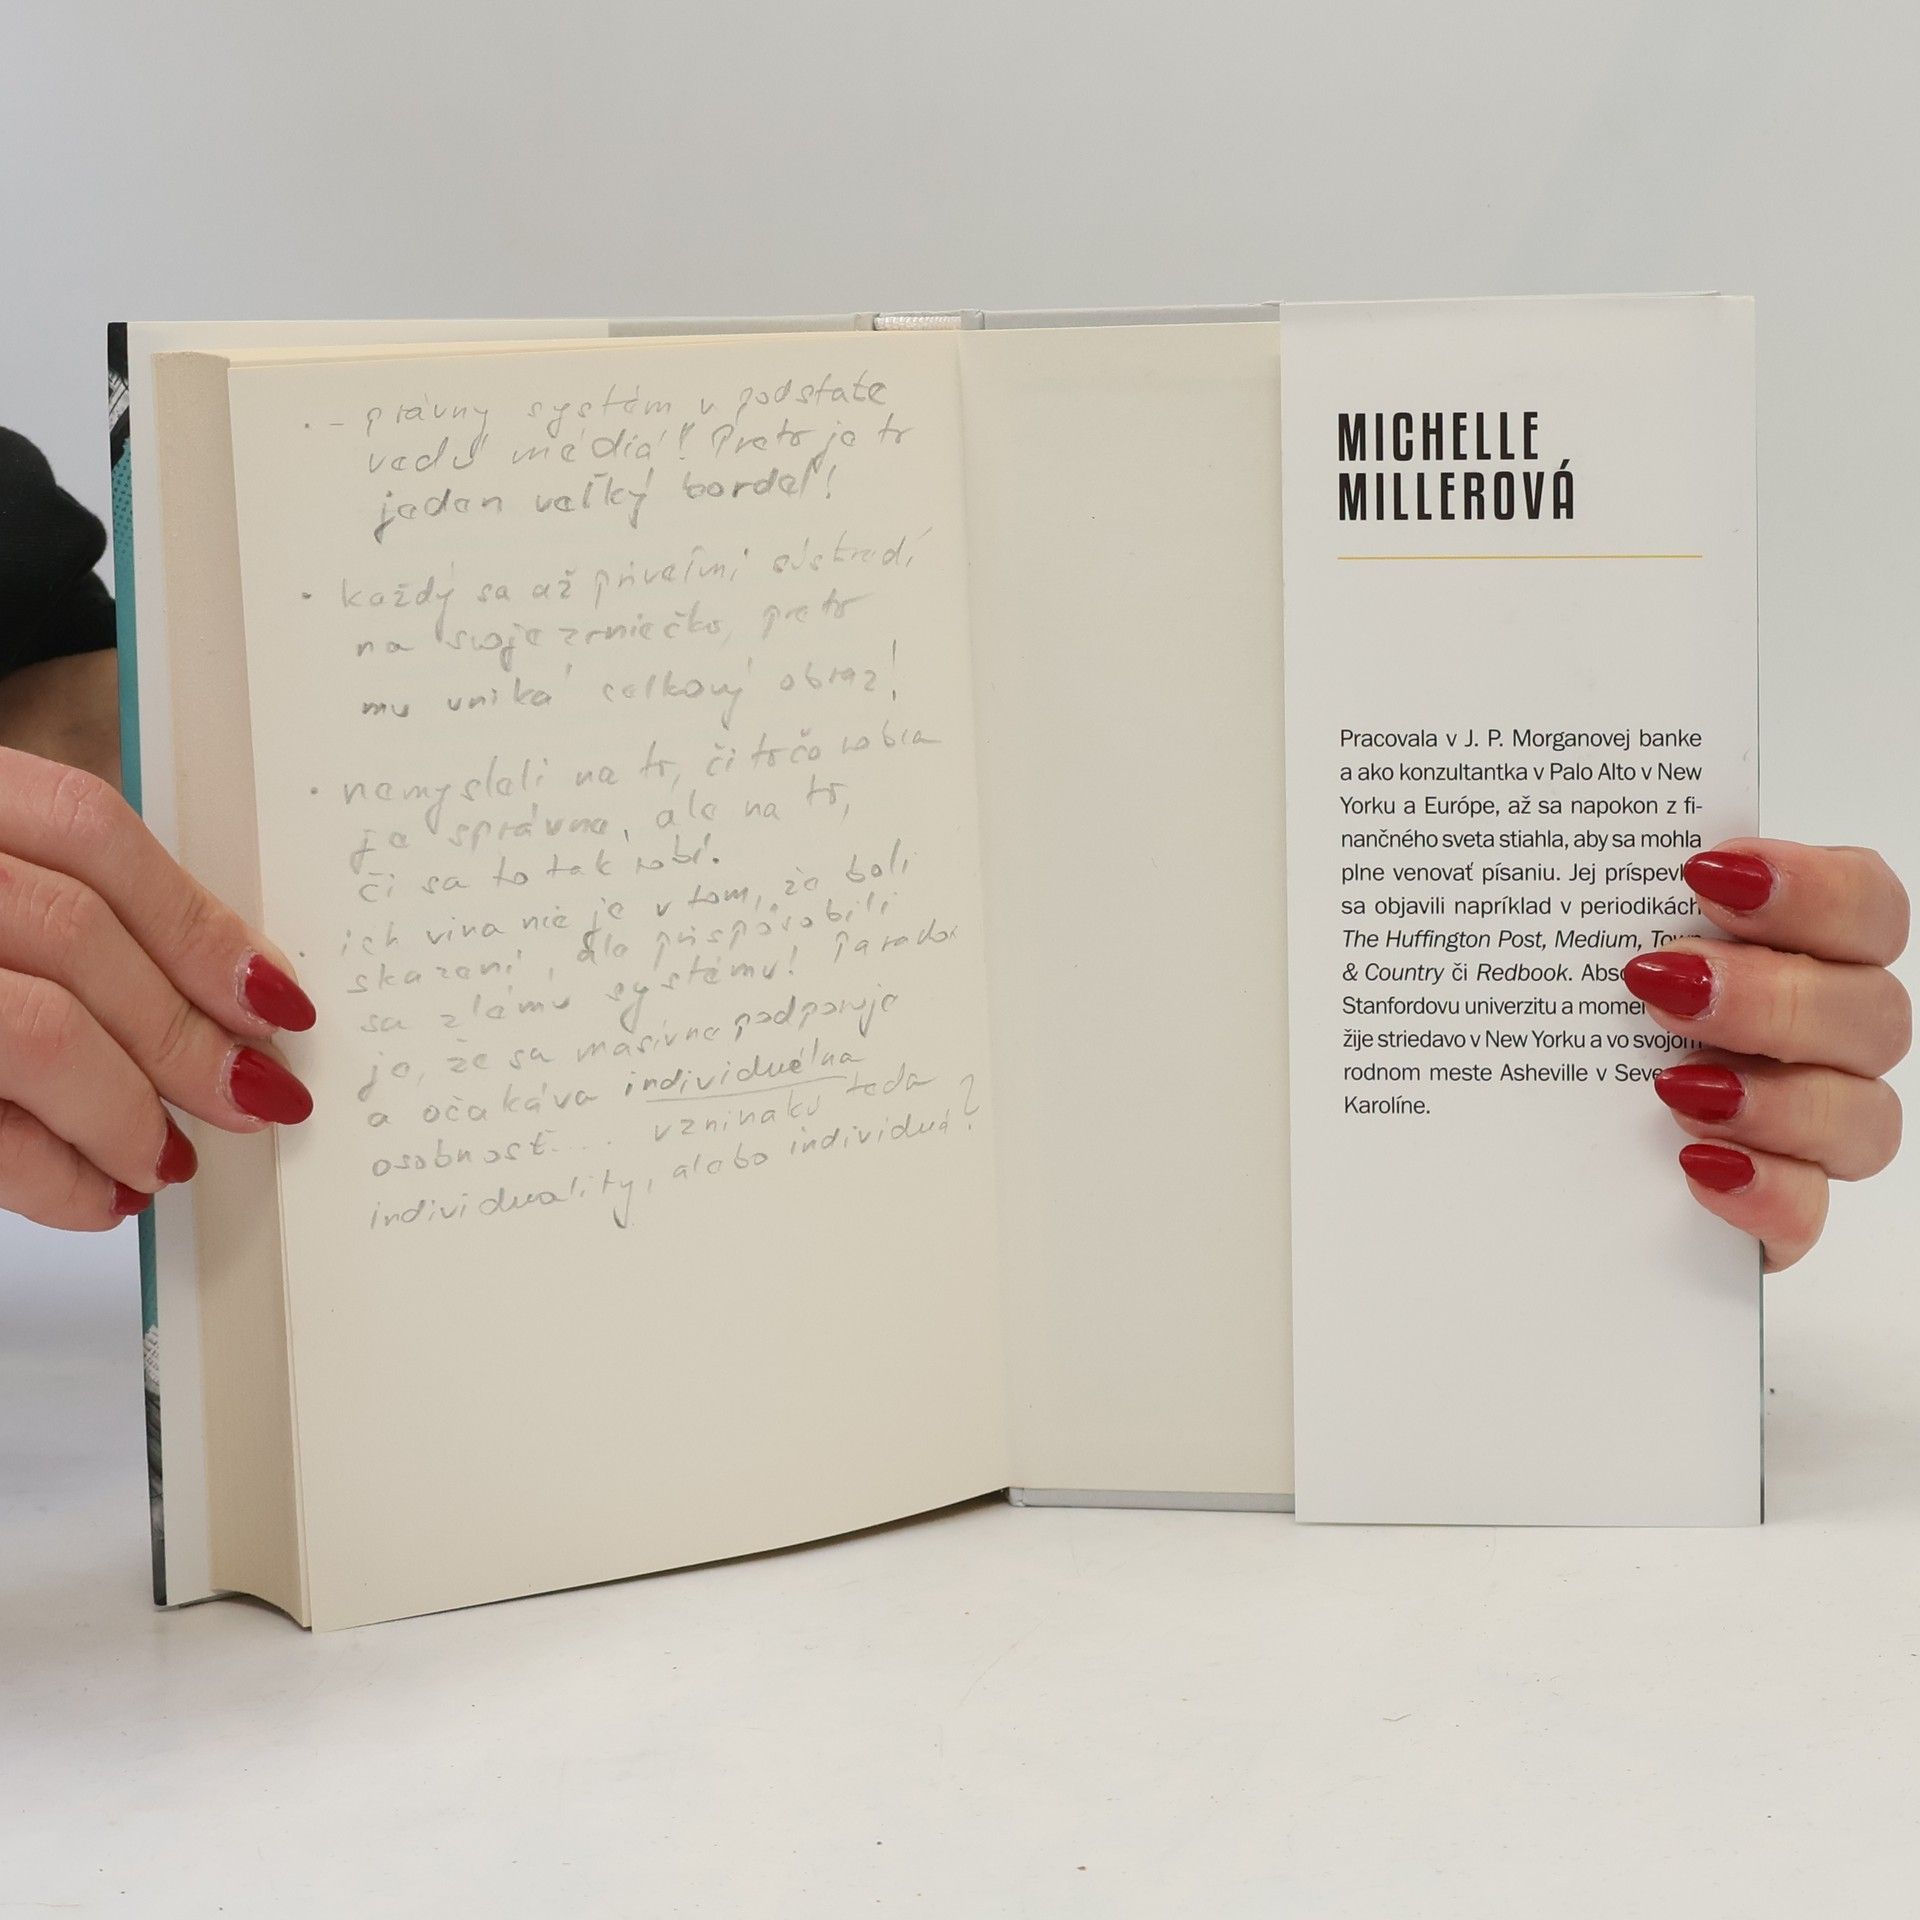 . – právny systém v podstate
vedú médiá! Preto je to
jeden veľký bordel!
• každý sa až priveľmi sústredí
na svoje zrniečko, preto
mu uniká celkový obraz!
• nemysleli na to, či to čo robia
je správne, ale na to,
či sa to tak robí.
• ich vina nie je v tom, že boli
skazení, ale prispôsobili
sa zlému systému! Paradox
je, že sa masívne podporuje
a očakáva individuálna
osobnosť... vznikajú teda
individuality, alebo individuá?
MICHELLE
MILLEROVÁ
Pracovala v J. P. Morganovej banke
a ako konzultantka v Palo Alto v New
Yorku a Európe, až sa napokon z fi-
nančného sveta stiahla, aby sa mohla
plne venovať písaniu. Jej príspev
sa objavili napríklad v periodikách
The Huffington Post, Medium, Town
& Country či Redbook. Abso
Stanfordovu univerzitu a momen
žije striedavo v New Yorku a vo svojom
rodnom meste Asheville v Seve
Karolíne.